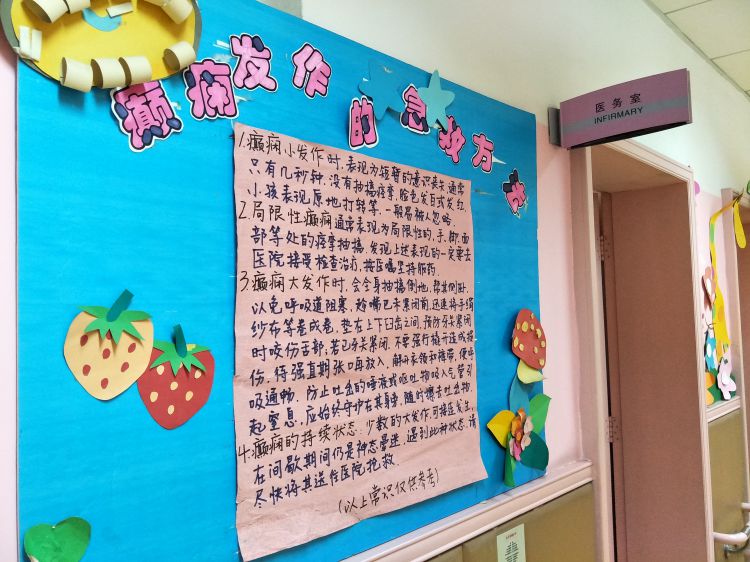 癫痫发作的急救方法
医务室
INFIRMARY
1.癫痫小发作时,表现为短暂的意识丧失,通常
只有几秒钟,没有抽搐痉挛,脸色发白或发红,
小孩表现原地打转等,一般易被人忽略.
2.局限性癫痫通常表现为局限性的,手、脚、面
部等处的痉挛抽搐,发现上述表现的一定要去
医院接受检查治疗,按医嘱坚持服药.
3.癫痫大发作时,会全身抽搐倒地,帮其侧卧,
以免呼吸道阻塞,趁嘴巴未紧闭前,迅速将手绢
纱布等卷成卷,垫在上下臼齿之间,预防牙关紧闭
时咬伤舌部,若已牙关紧闭,不要强行撬开造成损
伤,待强直期张口再放入,解开衣领和裤带,使呼
吸通畅,防止吐出的唾液或呕吐物吸入气管引
起窒息,应始终守护在其身旁,随时擦去吐出物.
4.癫痫的持续状态.少数的大发作,可接连发生,
在间歇期间仍是神态昏迷,遇到此种状态,请
尽快将其送往医院抢救.
(以上常识仅供参考)